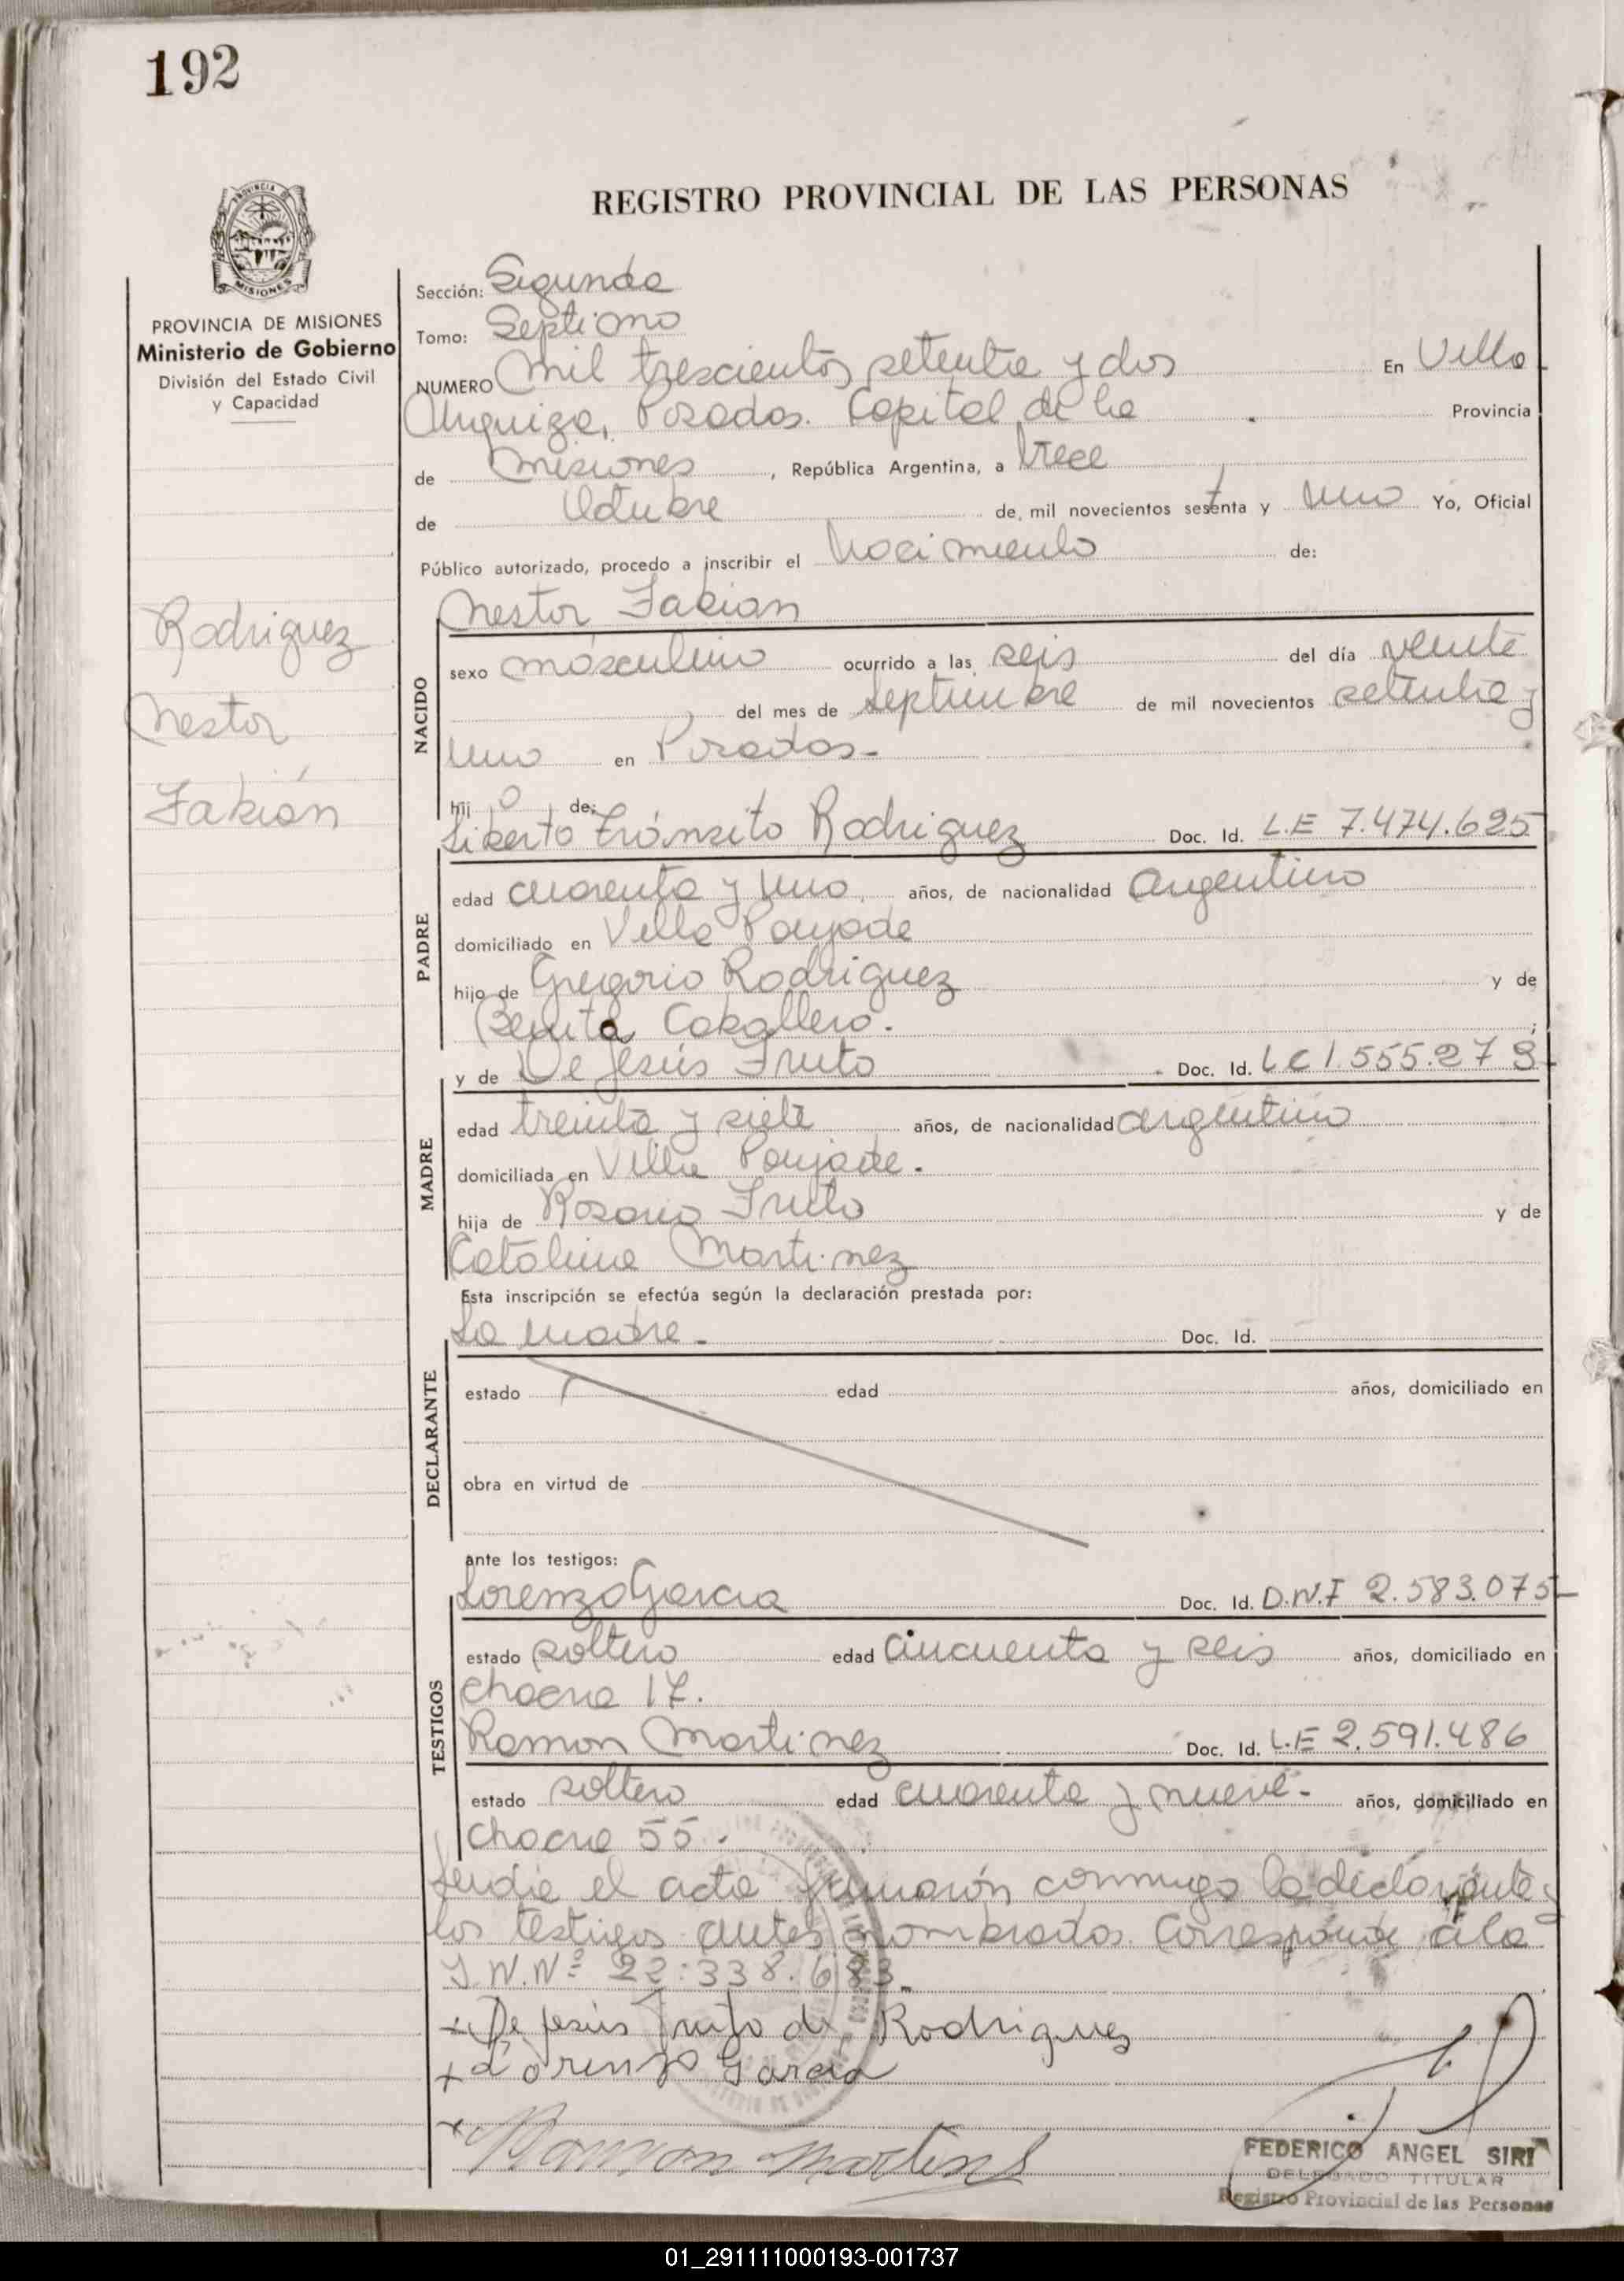 192
REGISTRO PROVINCIAL DE LAS PERSONAS
PROVINCIA DE MISIONES
MISIONES
PROVINCIA DE MISIONES
Ministerio de Gobierno
División del Estado Civil
y Capacidad
Rodriguez
Nestor
Fabián
Sección: Segunda
Tomo: Septimo
NUMERO Mil trescientos setenta y dos En Villa
Urquiza, Posadas. Capital de la Provincia
de Misiones, República Argentina, a trece
de Octubre de mil novecientos setenta y uno Yo, Oficial
Público autorizado, procedo a inscribir el Nacimiento de:
Nestor Fabian
NACIDO
sexo másculino ocurrido a las seis del día veinte
del mes de septiembre de mil novecientos setenta y
uno en Posadas-
hij o de:
Liberto Tránsito Rodriguez Doc. Id. L.E 7.474.625
PADRE
edad cuarenta y uno años, de nacionalidad Argentino
domiciliado en Villa Poujade
hijo de Gregorio Rodriguez y de
Benita Caballero.
y de De Jesús Fruto Doc. Id. LC 1.555.273
MADRE
edad treinta y siete años, de nacionalidad argentino
domiciliada en Villa Poujade.
hija de Rosario Fruto y de
Catalina Martinez
Esta inscripción se efectúa según la declaración prestada por:
La madre- Doc. Id.
DECLARANTE
estado edad años, domiciliado en
obra en virtud de
ante los testigos:
Lorenzo Garcia Doc. Id. D.N.I 2.583.075-
TESTIGOS
estado soltero edad cincuenta y seis años, domiciliado en
chacra 17.
Ramon Martinez Doc. Id. L.E 2.591.486
estado soltero edad cuarenta y nueve- años, domiciliado en
chacra 55.
el acta firmarón conmigo la declarante y
los testigos antes nombrados. Corresponde a la
I.N.Nº 22.338.683.
+ De Jesús Fruto de Rodrigues
+ Lorenzo Garcia
+ Ramon Martinez
FEDERICO ANGEL SIRI
DELEGADO TITULAR
Registro Provincial de las Personas
01_291111000193-001737